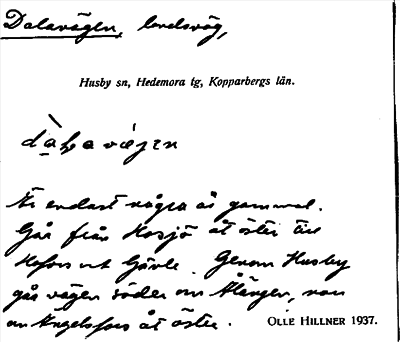 Dalavägen, landsväg,
Husby sn, Hedemora tg, Kopparbergs län.
dàḷavä̀gen
Är endast några år gammal.
Går från Korsjö åt öster till
Hofors och Gävle. Genom Husby
går vägen söder om Älängen,
om Ängelsfors åt öster.
OLLE HILLNER 1937.